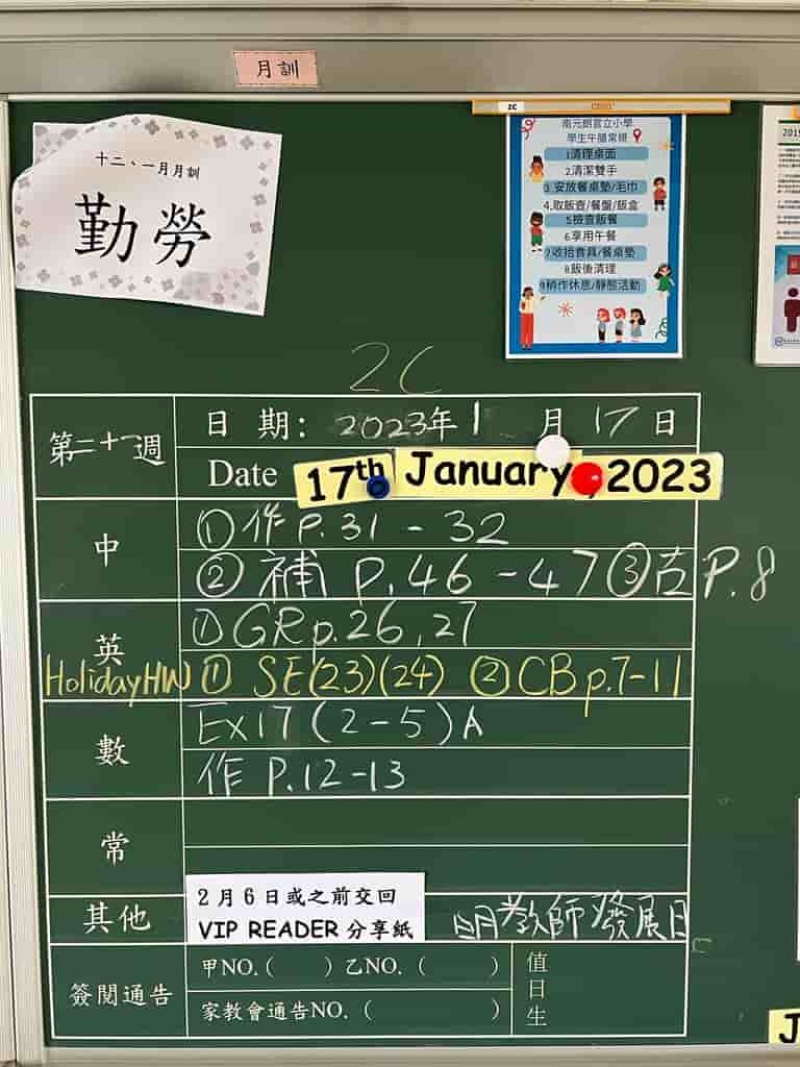 月訓
十二、一月月訓
勤勞
2C
南元朗官立小學
學生午膳常規
1清理桌面
2.清潔雙手
3.安放餐桌墊/毛巾
4.取飯壺/餐盤/飯盒
5檢查飯餐
6.享用午餐
7收拾食具/餐桌墊
8飯後清理
9稍作休息/靜態活動
2C
第二十一週
日 期: 2023年1月17日
Date 17th January, 2023
中
①作 P.31 - 32
② 補 P.46 - 47 ③古 P.8
英
①GR p.26,27
Holiday HW ① SE(23)(24) ② CB p.7-11
數
Ex17 (2-5)A
作 P.12-13
常
其他
2月6日或之前交回
VIP READER 分享紙
明教師發展日
簽閱通告
甲NO.( ) 乙NO.( )
家教會通告NO.( )
值日生
J